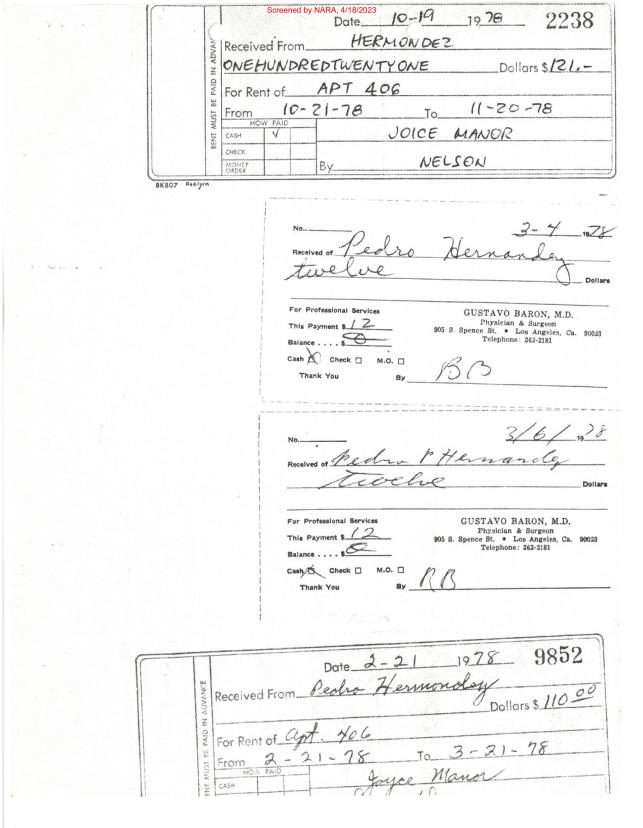 Screened by NARA, 4/18/2023
Date 10-19 1978 2238
Received From HERMONDEZ
ONEHUNDREDTWENTYONE Dollars $121.-
For Rent of APT 406
From 10-21-78 To 11-20-78
HOW PAID
CASH √ JOICE MANOR
CHECK
MONEY ORDER By NELSON
RENT MUST BE PAID IN ADVAN
8K807 Rediform
No. 3-4 1978
Received of Pedro Hernandez
twelve Dollars
For Professional Services
This Payment $ 12
Balance .... $ 0
Cash X Check ☐ M.O. ☐
Thank You By BB
GUSTAVO BARON, M.D.
Physician & Surgeon
905 S. Spence St. • Los Angeles, Ca. 90023
Telephone: 262-2181
No. 3/6/ 1978
Received of Pedro P Hernandez
twelve Dollars
For Professional Services
This Payment $ 12
Balance .... $ 0
Cash X Check ☐ M.O. ☐
Thank You By RB
GUSTAVO BARON, M.D.
Physician & Surgeon
905 S. Spence St. • Los Angeles, Ca. 90023
Telephone: 262-2181
Date 2-21 1978 9852
Received From Pedro Hermondez
Dollars $ 110 00
For Rent of Apt. 406
From 2-21-78 To 3-21-78
HOW PAID
CASH Joyce Manor
ENT MUST BE PAID IN ADVANCE